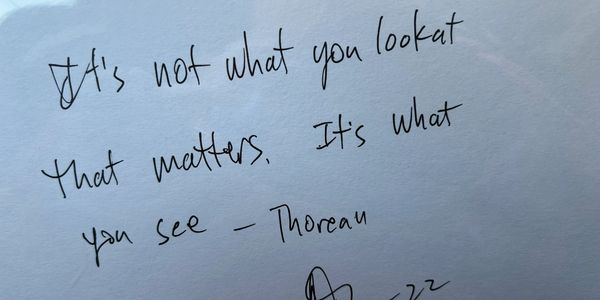 It's not what you lookat
that matters. It's what
you see - Thoreau
-22